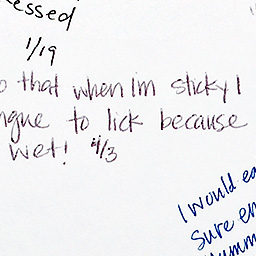 essed
1/19
o that when I'm sticky I
ngue to lick because
wet! 4/3
I would ea
Sure en